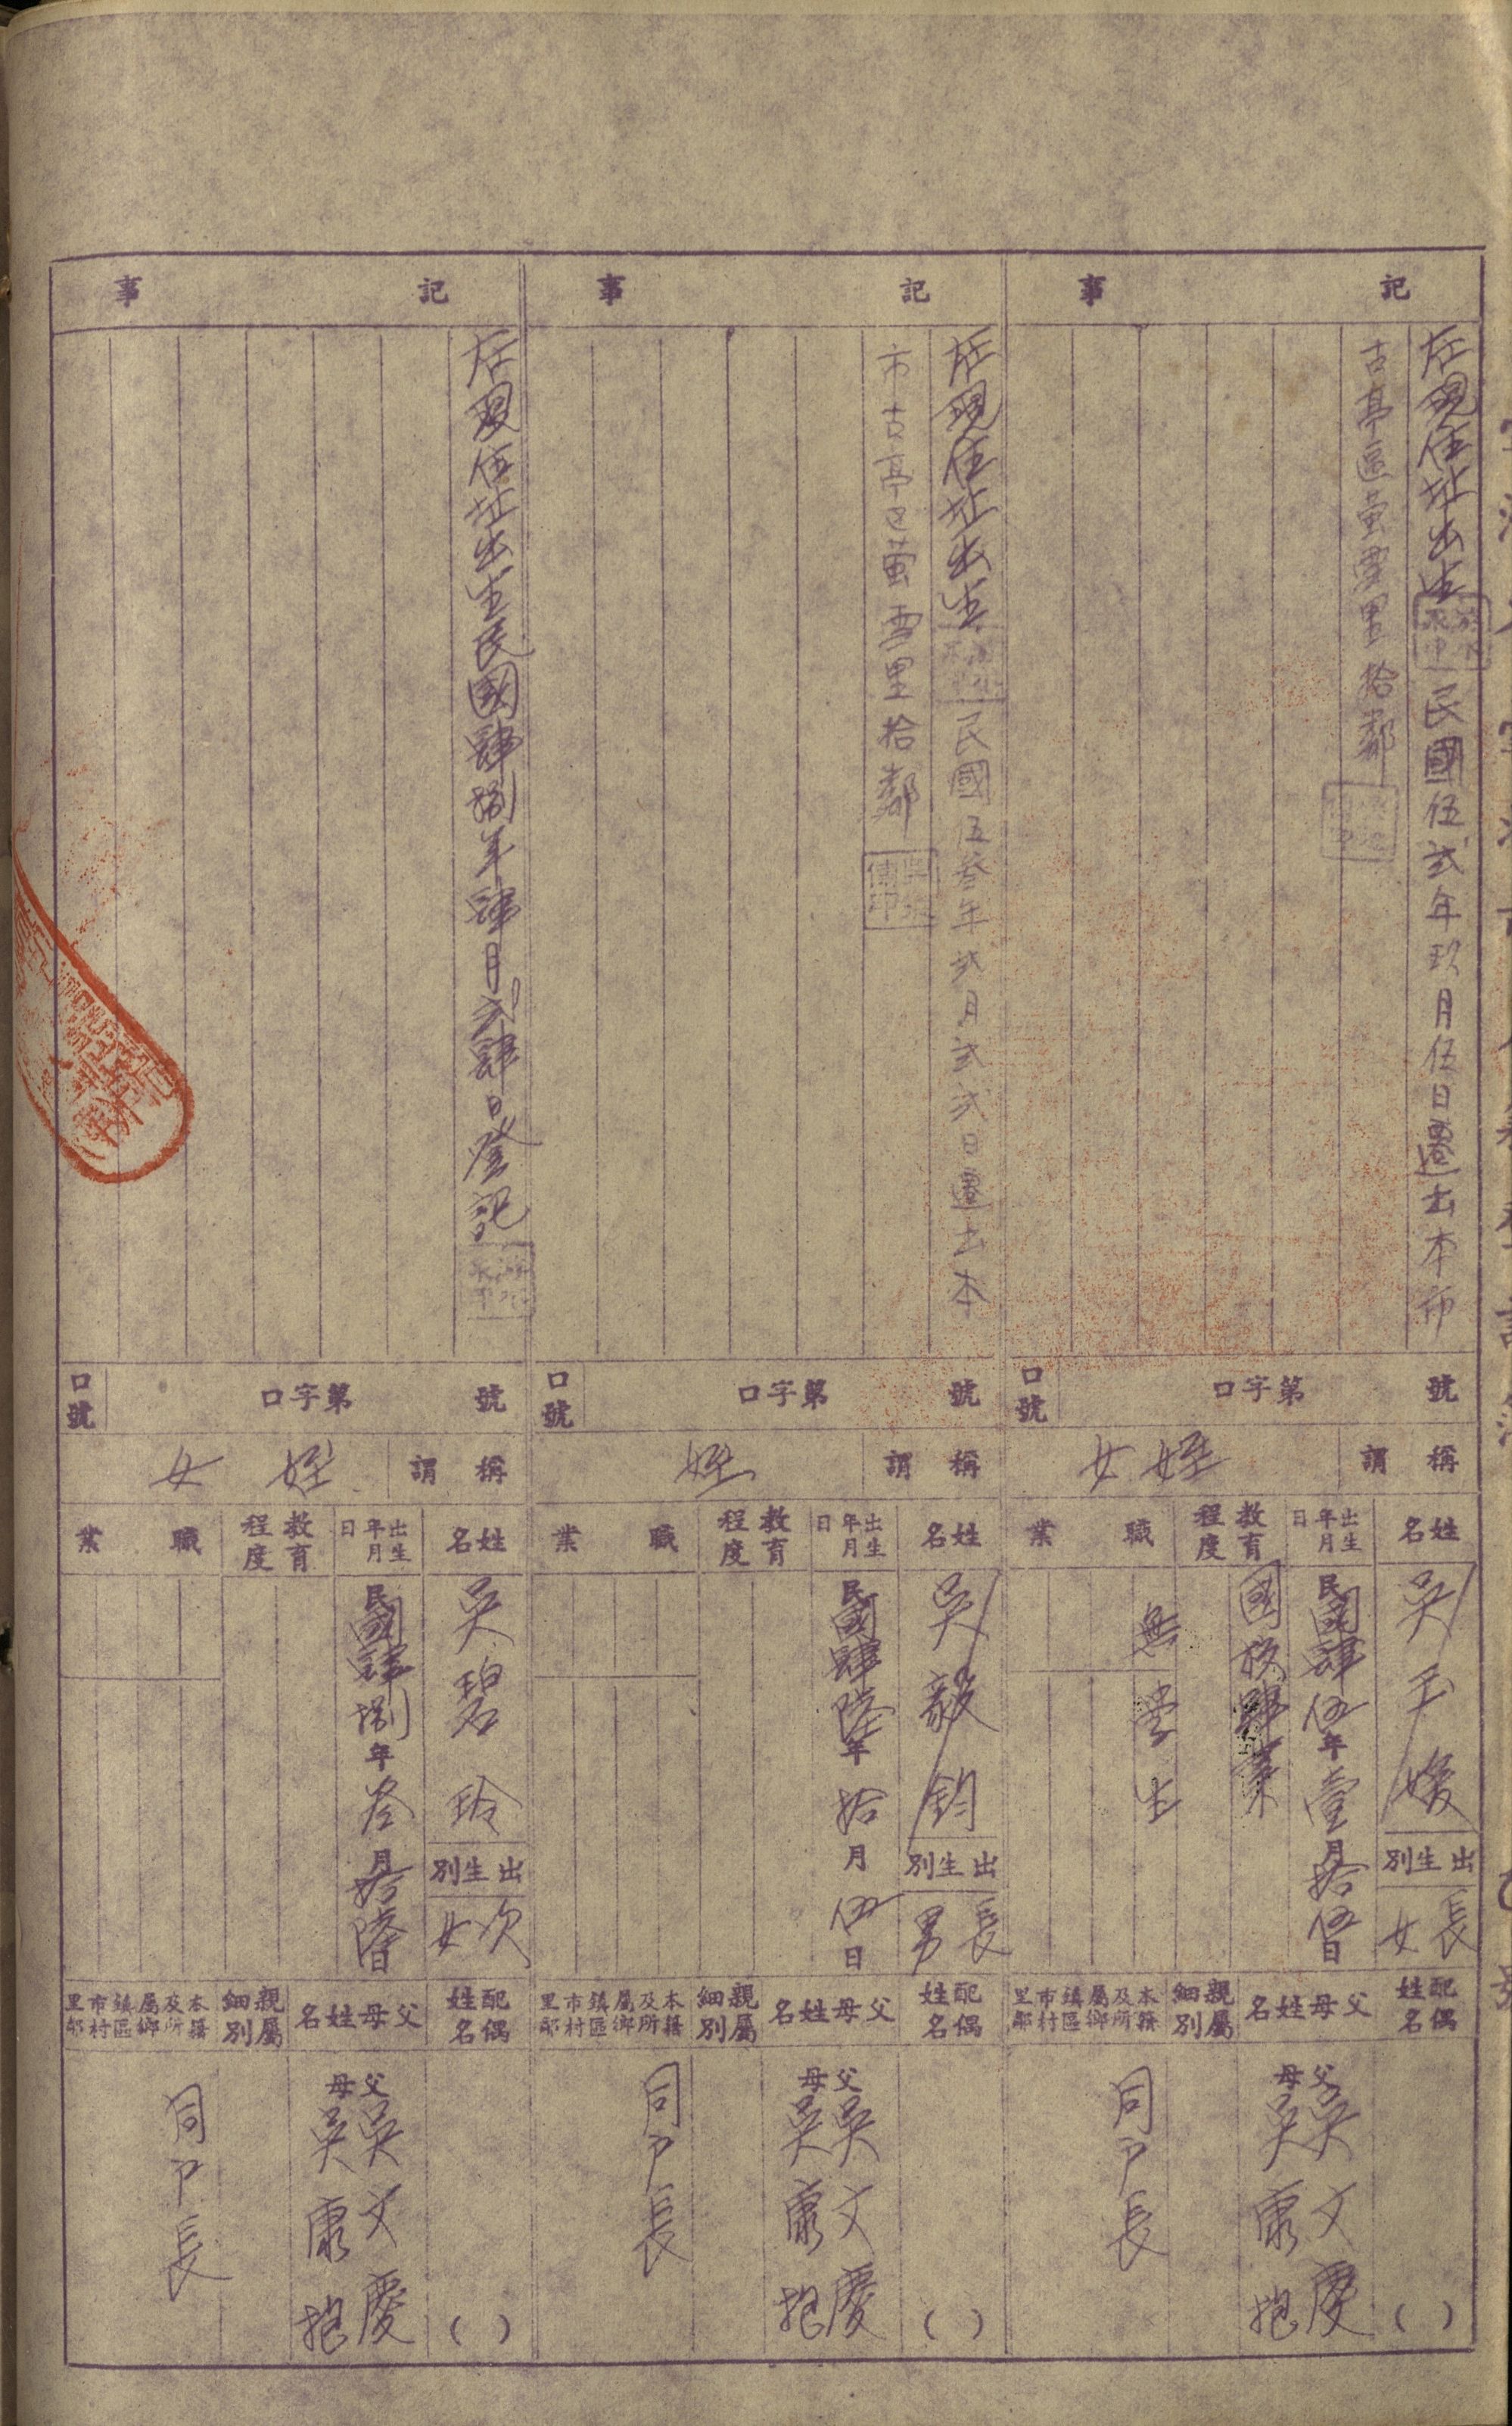 記事
在現住址出生
民國伍弍年玖月伍日遷出本市
古亭區螢雪里拾鄰
口號
口字第 號
稱謂
姪女
姓名
吳 玉 媛
出生別
長女
出生年月日
民國肆伍年壹月拾伍日
教育程度
國校肄業
職業
無
學生
配偶姓名
( )
父母姓名
父 吳文慶
母 吳康抱
親屬細別
本籍及所屬鄉鎮區市村里鄰
同戶長
記事
在現住址出生
民國五叁年弍月弍弍日遷出本
市古亭区萤雪里拾鄰
口號
口字第 號
稱謂
姪
姓名
吳毅鈞
出生別
長男
出生年月日
民國肆陸年拾月伍日
教育程度
職業
配偶姓名
( )
父母姓名
父 吳文慶
母 吳康抱
親屬細別
本籍及所屬鄉鎮區市村里鄰
同戶長
記事
在現住址出生民國肆捌年肆月弍肆日登記
口號
口字第 號
稱謂
姪女
姓名
吳碧玲
出生別
次女
出生年月日
民國肆捌年叁月拾陸日
教育程度
職業
配偶姓名
( )
父母姓名
父 吳文慶
母 吳康抱
親屬細別
本籍及所屬鄉鎮區市村里鄰
同戶長